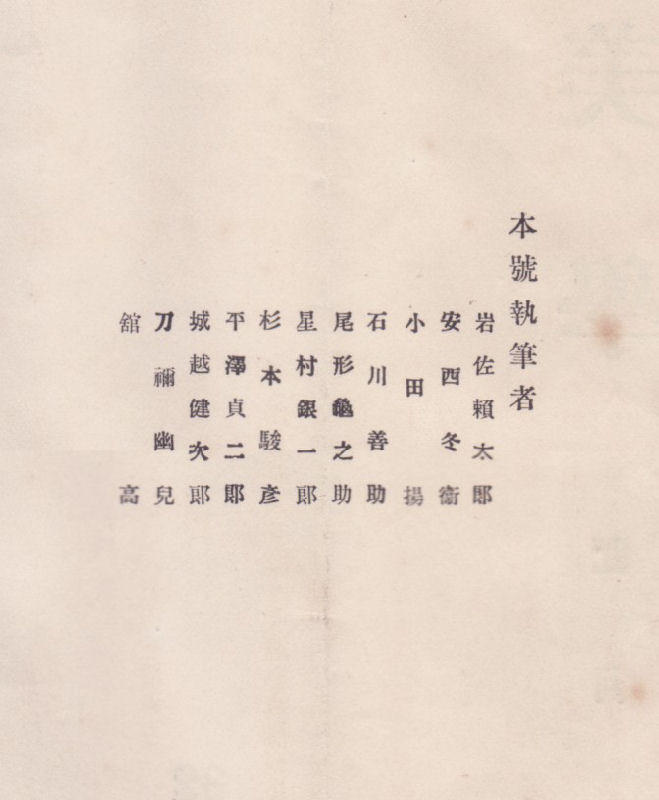 本號執筆者
岩佐賴太郎
安西冬衞
小田揚
石川善助
尾形龜之助
星村銀一郎
杉本駿彥
平澤貞二郎
城越健次郎
刀禰幽兒
舘高